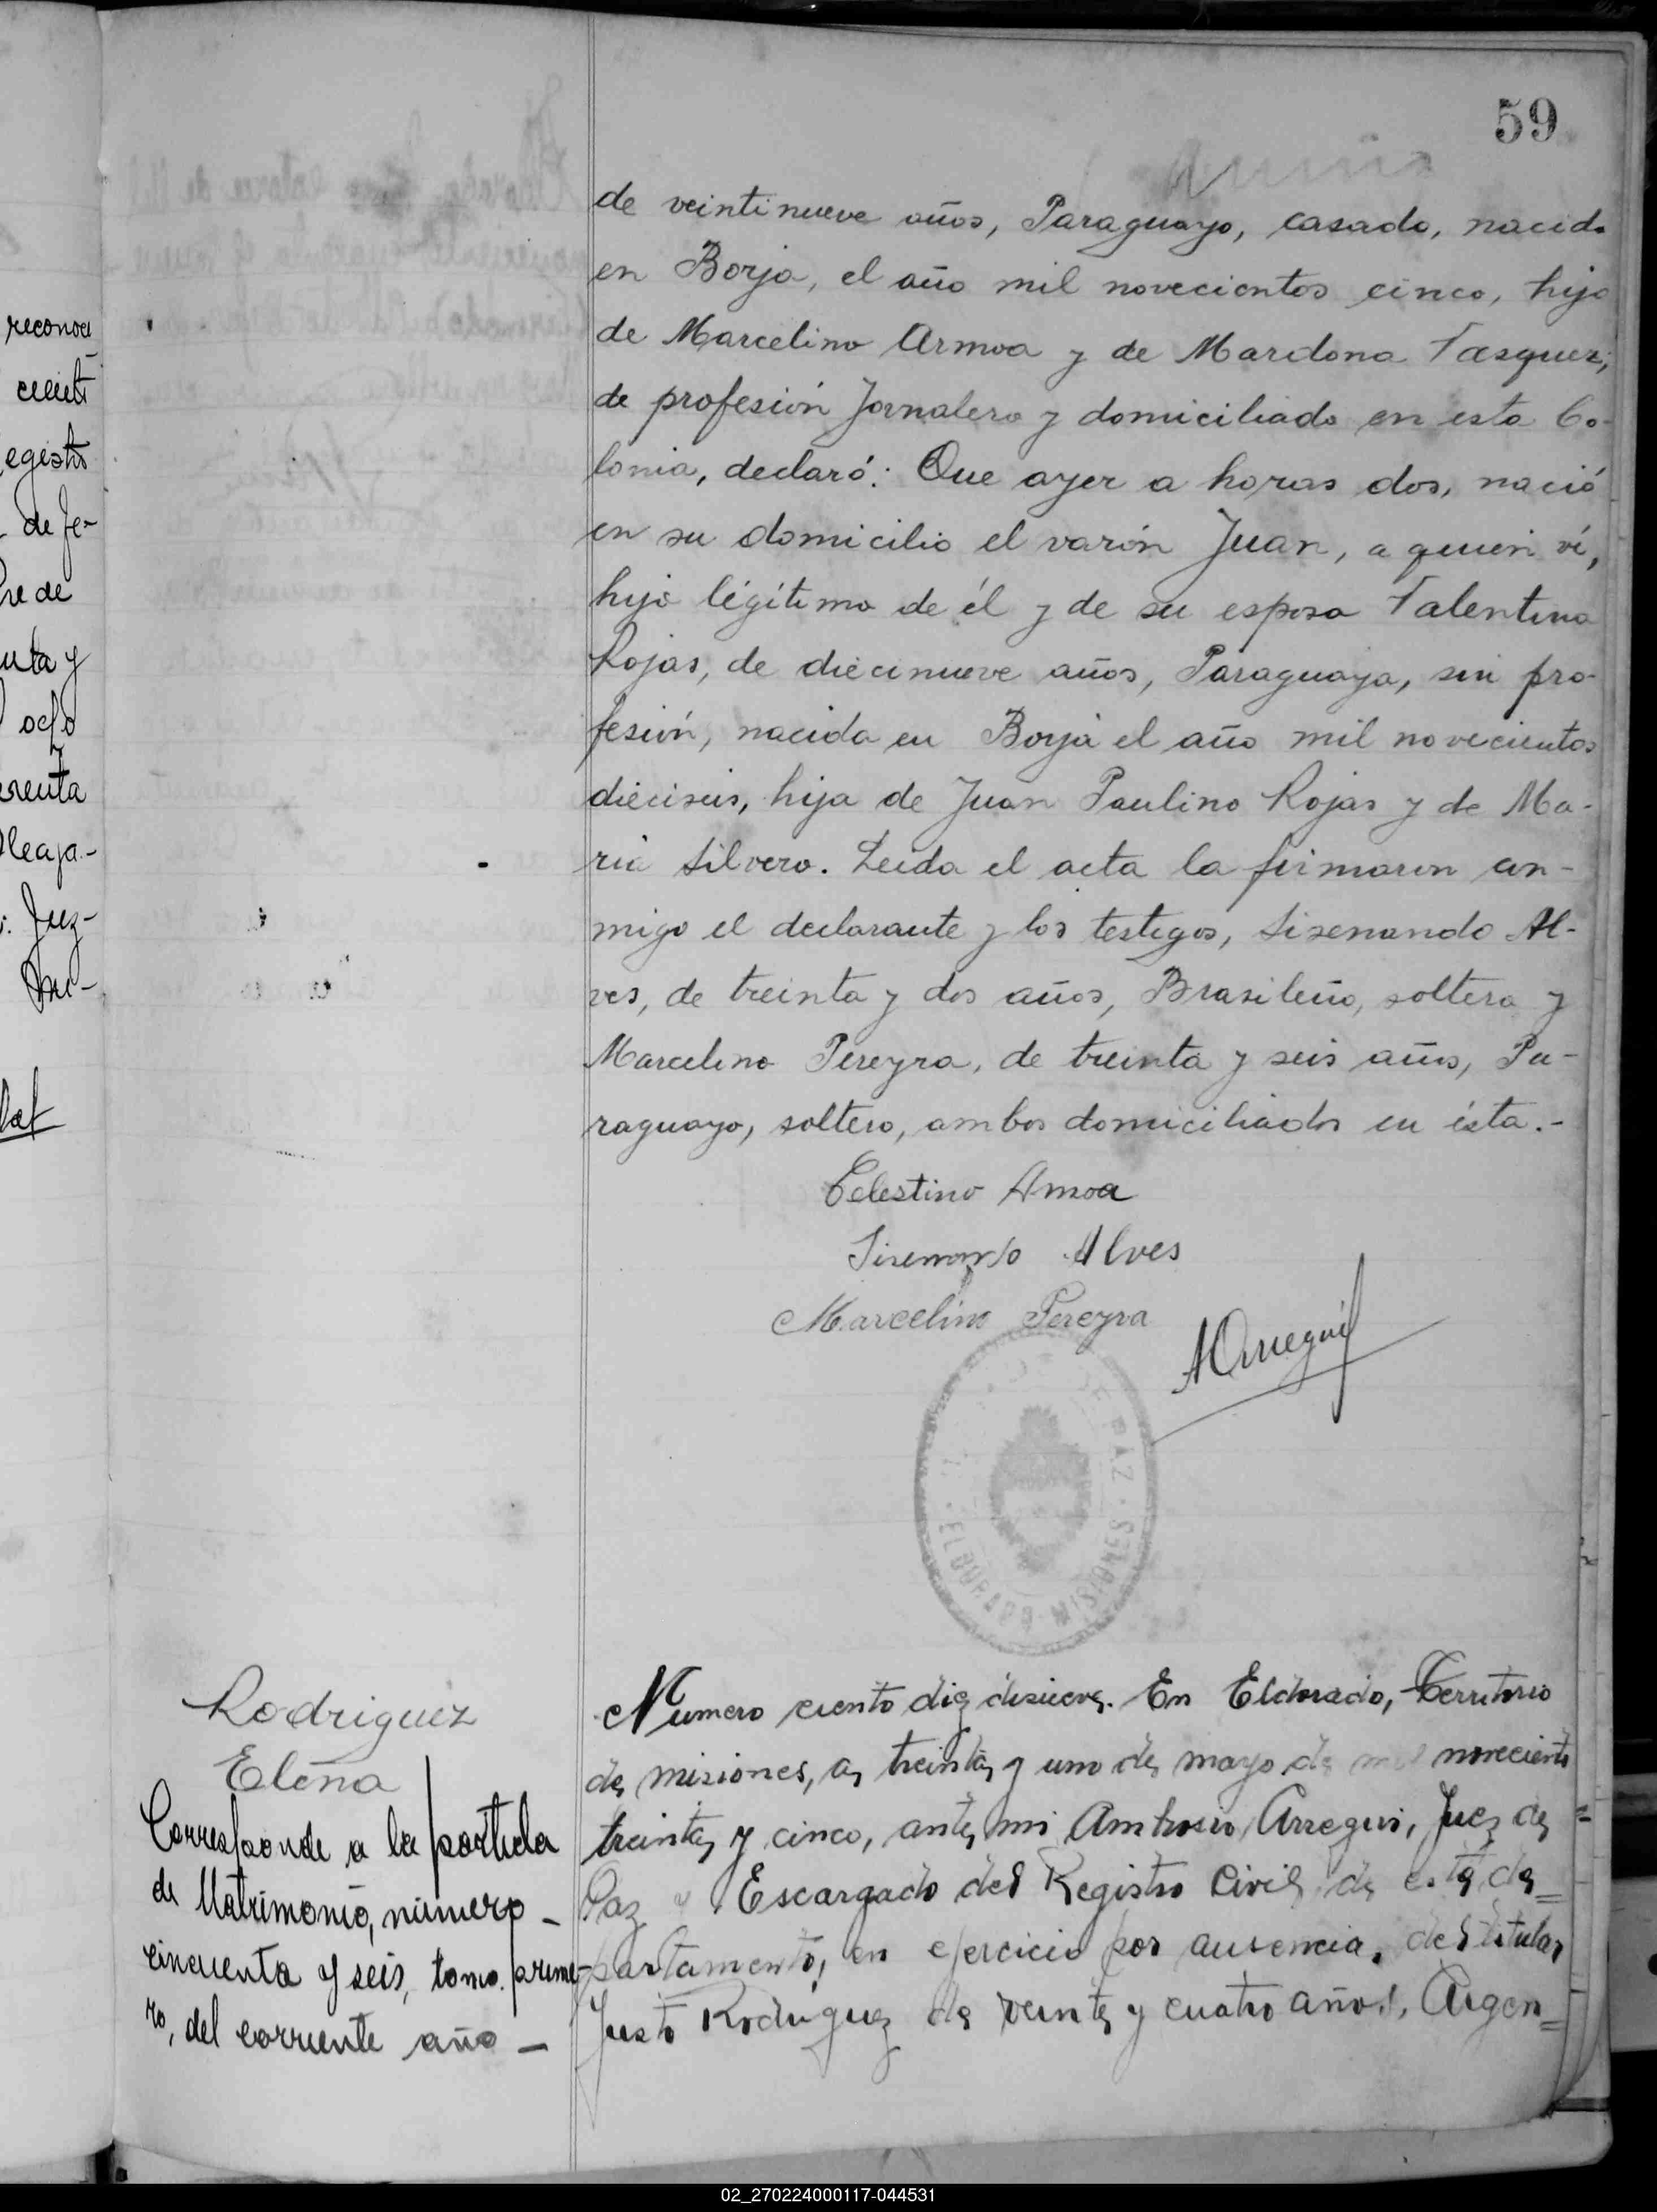 59
de veintinueve años, Paraguayo, casado, nacido
en Borja, el año mil novecientos cinco, hijo
de Marcelino Armoa y de Mardona Vasquez,
de profesión Jornalero y domiciliado en esta Co-
lonia, declaró: Que ayer a horas dos, nació
en su domicilio el varón Juan, a quien ví,
hijo légitimo de él y de su esposa Valentina
Rojas, de diecinueve años, Paraguaya, sin pro-
fesión, nacida en Borja el año mil novecientos
dieciseis, hija de Juan Paulino Rojas y de Ma-
ria Silvero. Leida el acta la firmaron con-
migo el declarante y los testigos, Sisenando Al-
ves, de treinta y dos años, Brasileño, soltero y
Marcelino Pereyra, de treinta y seis años, Pa-
raguayo, soltero, ambos domiciliados en ésta.-
Celestino Amoa
Sisenando Alves
Marcelino Pereyra
AArregui
DE PAZ · ELDORADO - MISIONES
Rodriguez
Elena
Corresponde a la partida
de Matrimonio, número -
cincuenta y seis, tomo prime-
ro, del corriente año -
Numero ciento diez disieve. En Eldorado, Territorio
de misiones, a treinta y uno de mayo de mil noveciento
treinta y cinco, ante mi Ambrosio Arregui, Juez de
Paz y Escargado del Registro Civil de este de=
partamento, en ejercicio por ausencia del titular
Justo Rodriguez de veinte y cuatro años, Argen=
reconoci
egistro
de Fe-
re de
nta y
ocho
renta
: Juz-